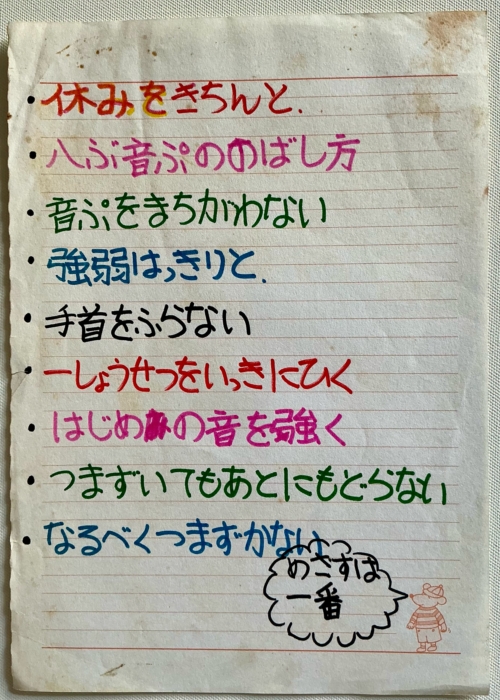 ・休みをきちんと.
・八ぶ音ぷののばし方
・音ぷをまちがわない
・強弱はっきりと.
・手首をふらない
・一しょうせつをいっきにひく
・はじめの音を強く
・つまずいてもあとにもどらない
・なるべくつまずかない
めざすは
一番